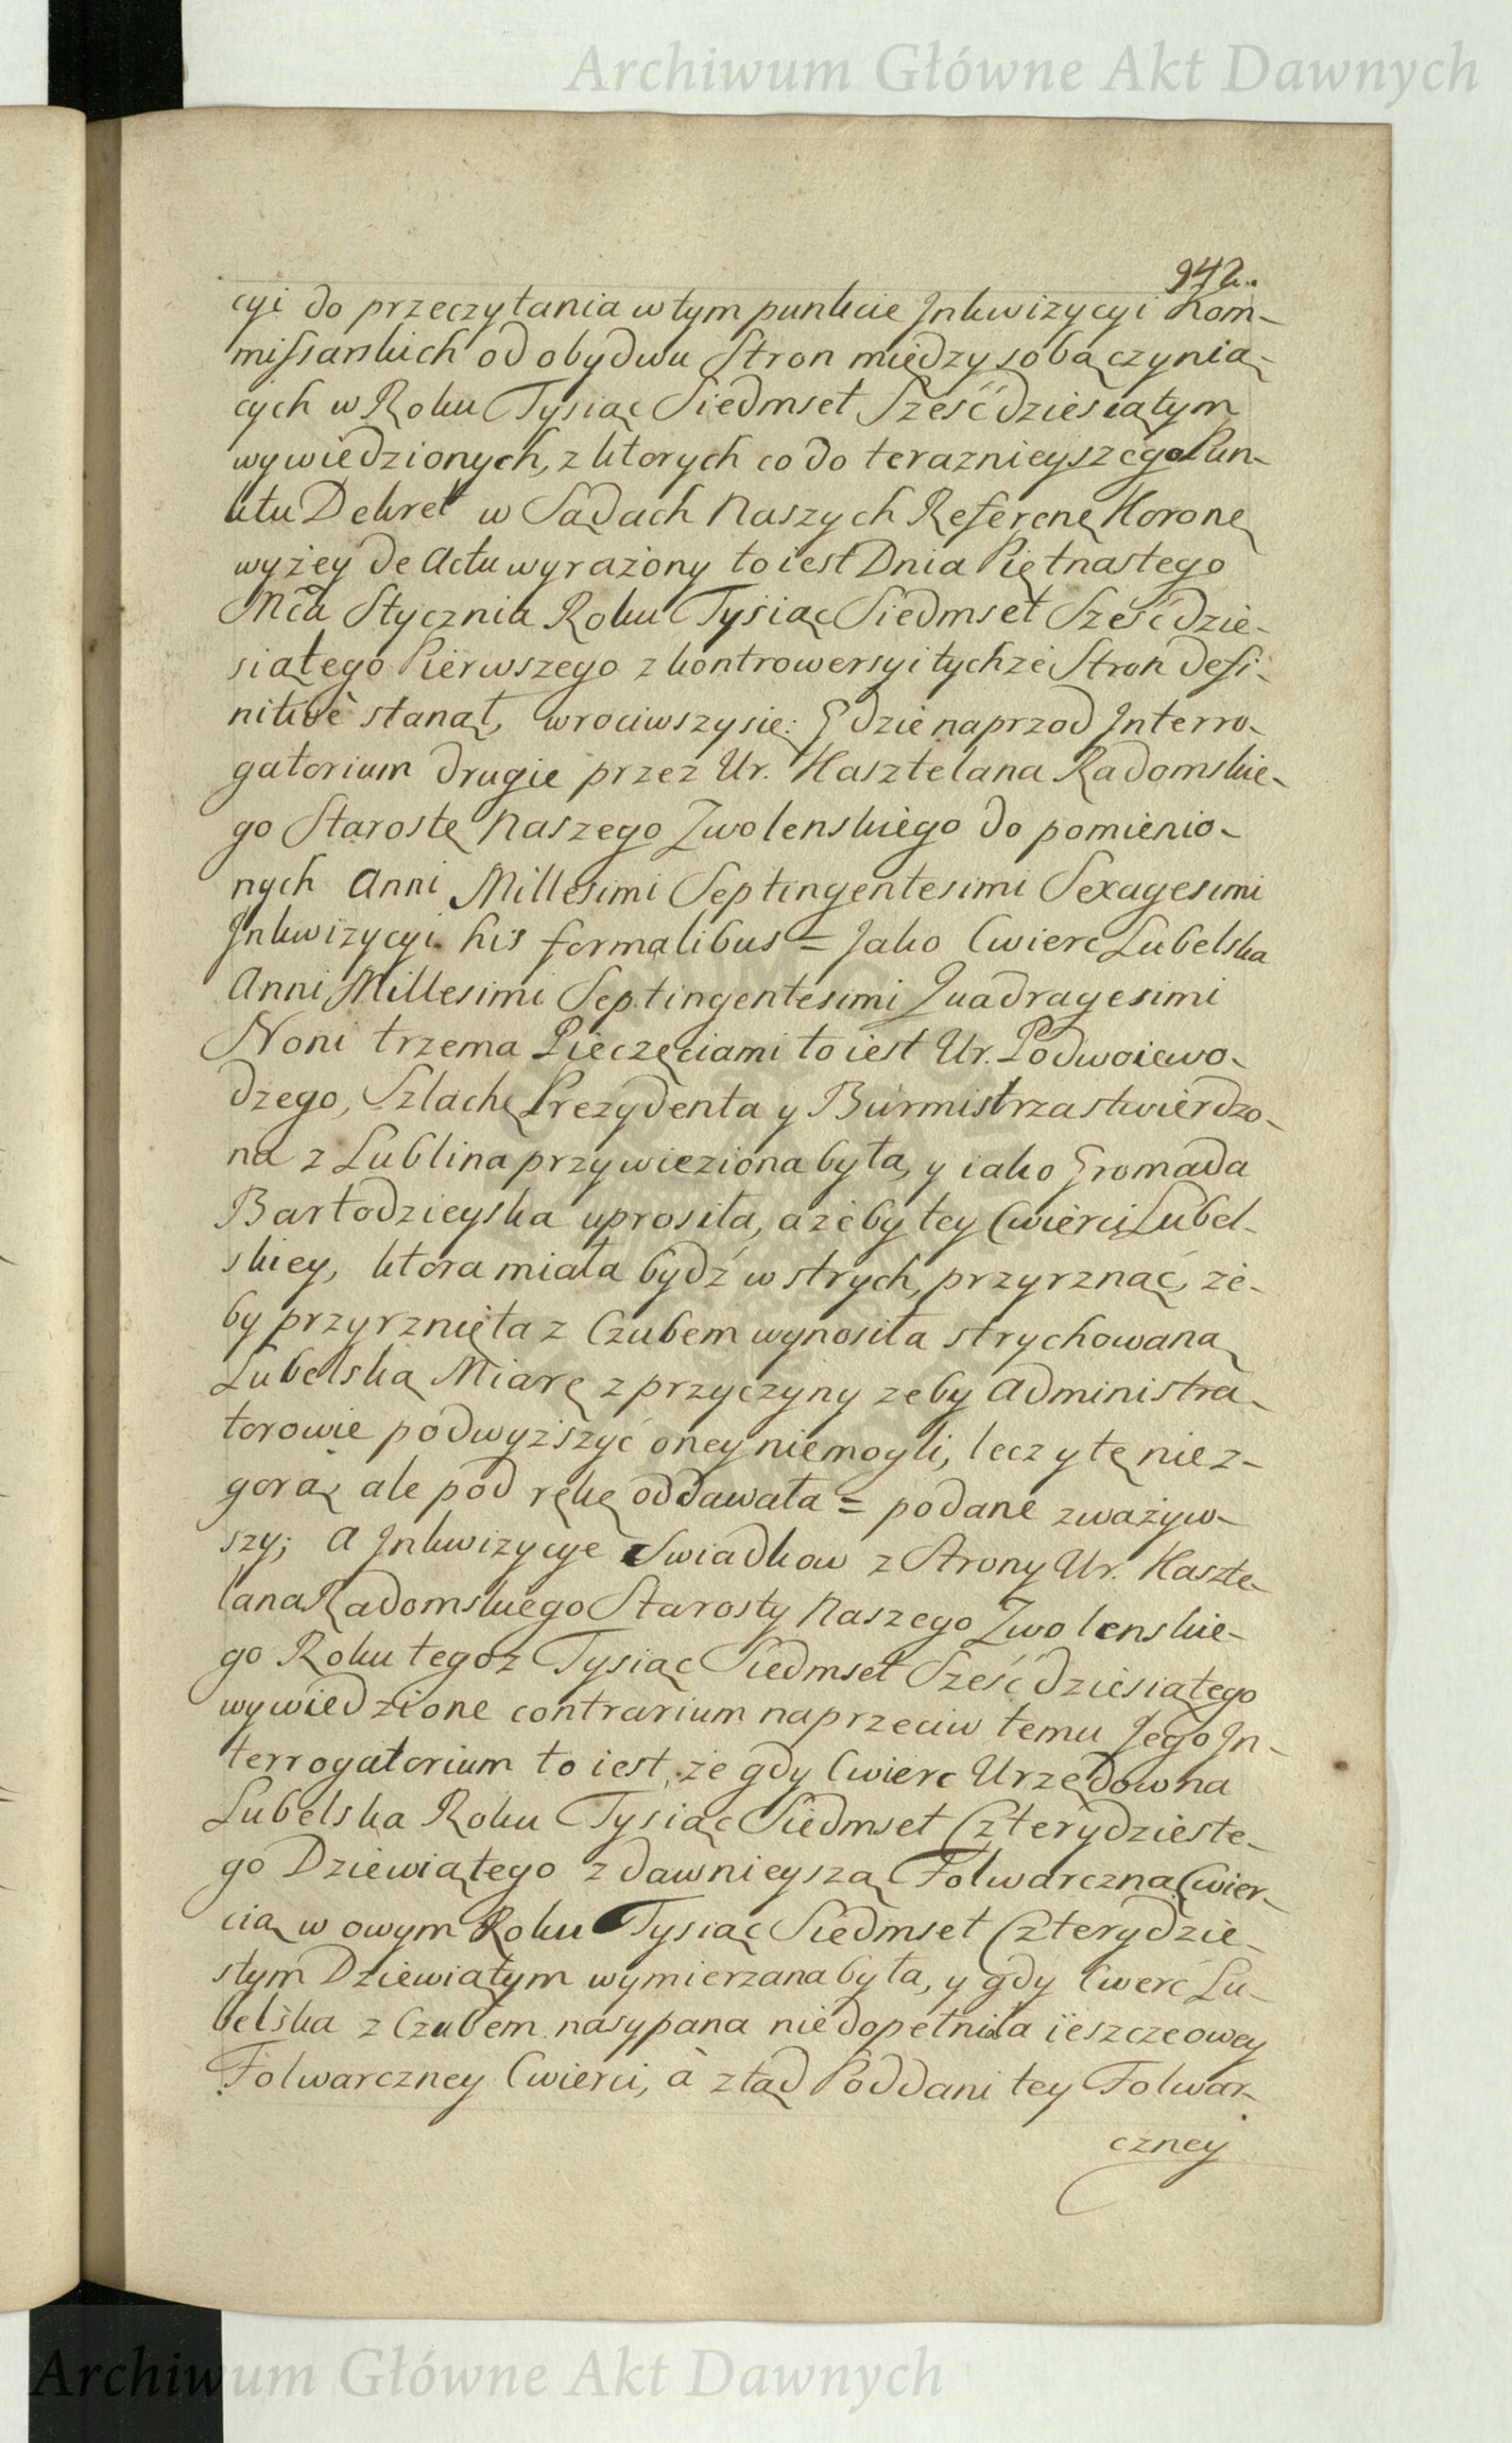 Archiwum Główne Akt Dawnych
942.
cyi do przeczytania w tym punkcie Jnkwizycyi Kom-
missarskich od obydwu Stron między sobą czynią-
cych w Roku Tysiąc Siedmset Sześćdziesiątym
wywiedzionych, z ktorych co do teraznieyszego Pun-
ktu Dekret w Sądach Naszych Referenę Koronę
wyżey de Actu wyrażony to iest Dnia Piętnastego
Mca Stycznia Roku Tysiąc Siedmset Sześćdzie-
siątego Pierwszego z kontrowersyi tychże Stron defi-
nitivè stanął, wrociwszy się: Gdzie naprzod Jnterro-
gatorium drugie przez Ur. Kasztelana Radomskie-
go Starostę Naszego Zwolenskiego do pomienio-
nych Anni Millesimi Septingentesimi Sexagesimi
Jnkwizycyi his formalibus = Jako Cwierc Lubelska
Anni Millesimi Septingentesimi Quadragesimi
Noni trzema Pieczęciami to iest Ur. Podwoiewo-
dzego, Szlachę Prezydenta y Burmistrza stwierdzo-
na z Lublina przywieziona była, y iako Gromada
Bartodzieyska uprosiła, ażeby tey Cwierci Lubel-
skiey, ktora miała bydź w strych, przyrznąć, że-
by przyrznięta z Czubem wynosiła strychowaną
Lubelską Miarę z przyczyny zeby Administra-
torowie podwyższyć oney niemogli, lecz y tę nie z-
gorą, ale pod rękę oddawała = podane zważyw-
szy; A Jnkwizycye Swiadkow z Strony Ur. Kaszte-
lana Radomskiego Starosty Naszego Zwolenskie-
go Roku tegoż Tysiąc Siedmset Sześćdziesiątego
wywiedzione contrarium naprzeciw temu Jego Jn-
terrogatorium to iest, że gdy Cwierc Urzędowna
Lubelska Roku Tysiąc Siedmset Czterydzieste-
go Dziewiątego z dawnieyszą Folwarczną Cwier-
cią w owym Roku Tysiąc Siedmset Czterydzie-
stym Dziewiątym wymierzana była, y gdy Cwerć Lu-
belska z Czubem nasypana niedopełniła ieszcze owey
Folwarczney Cwierci, à ztąd Poddani tey Folwar-
czney
Archiwum Główne Akt Dawnych